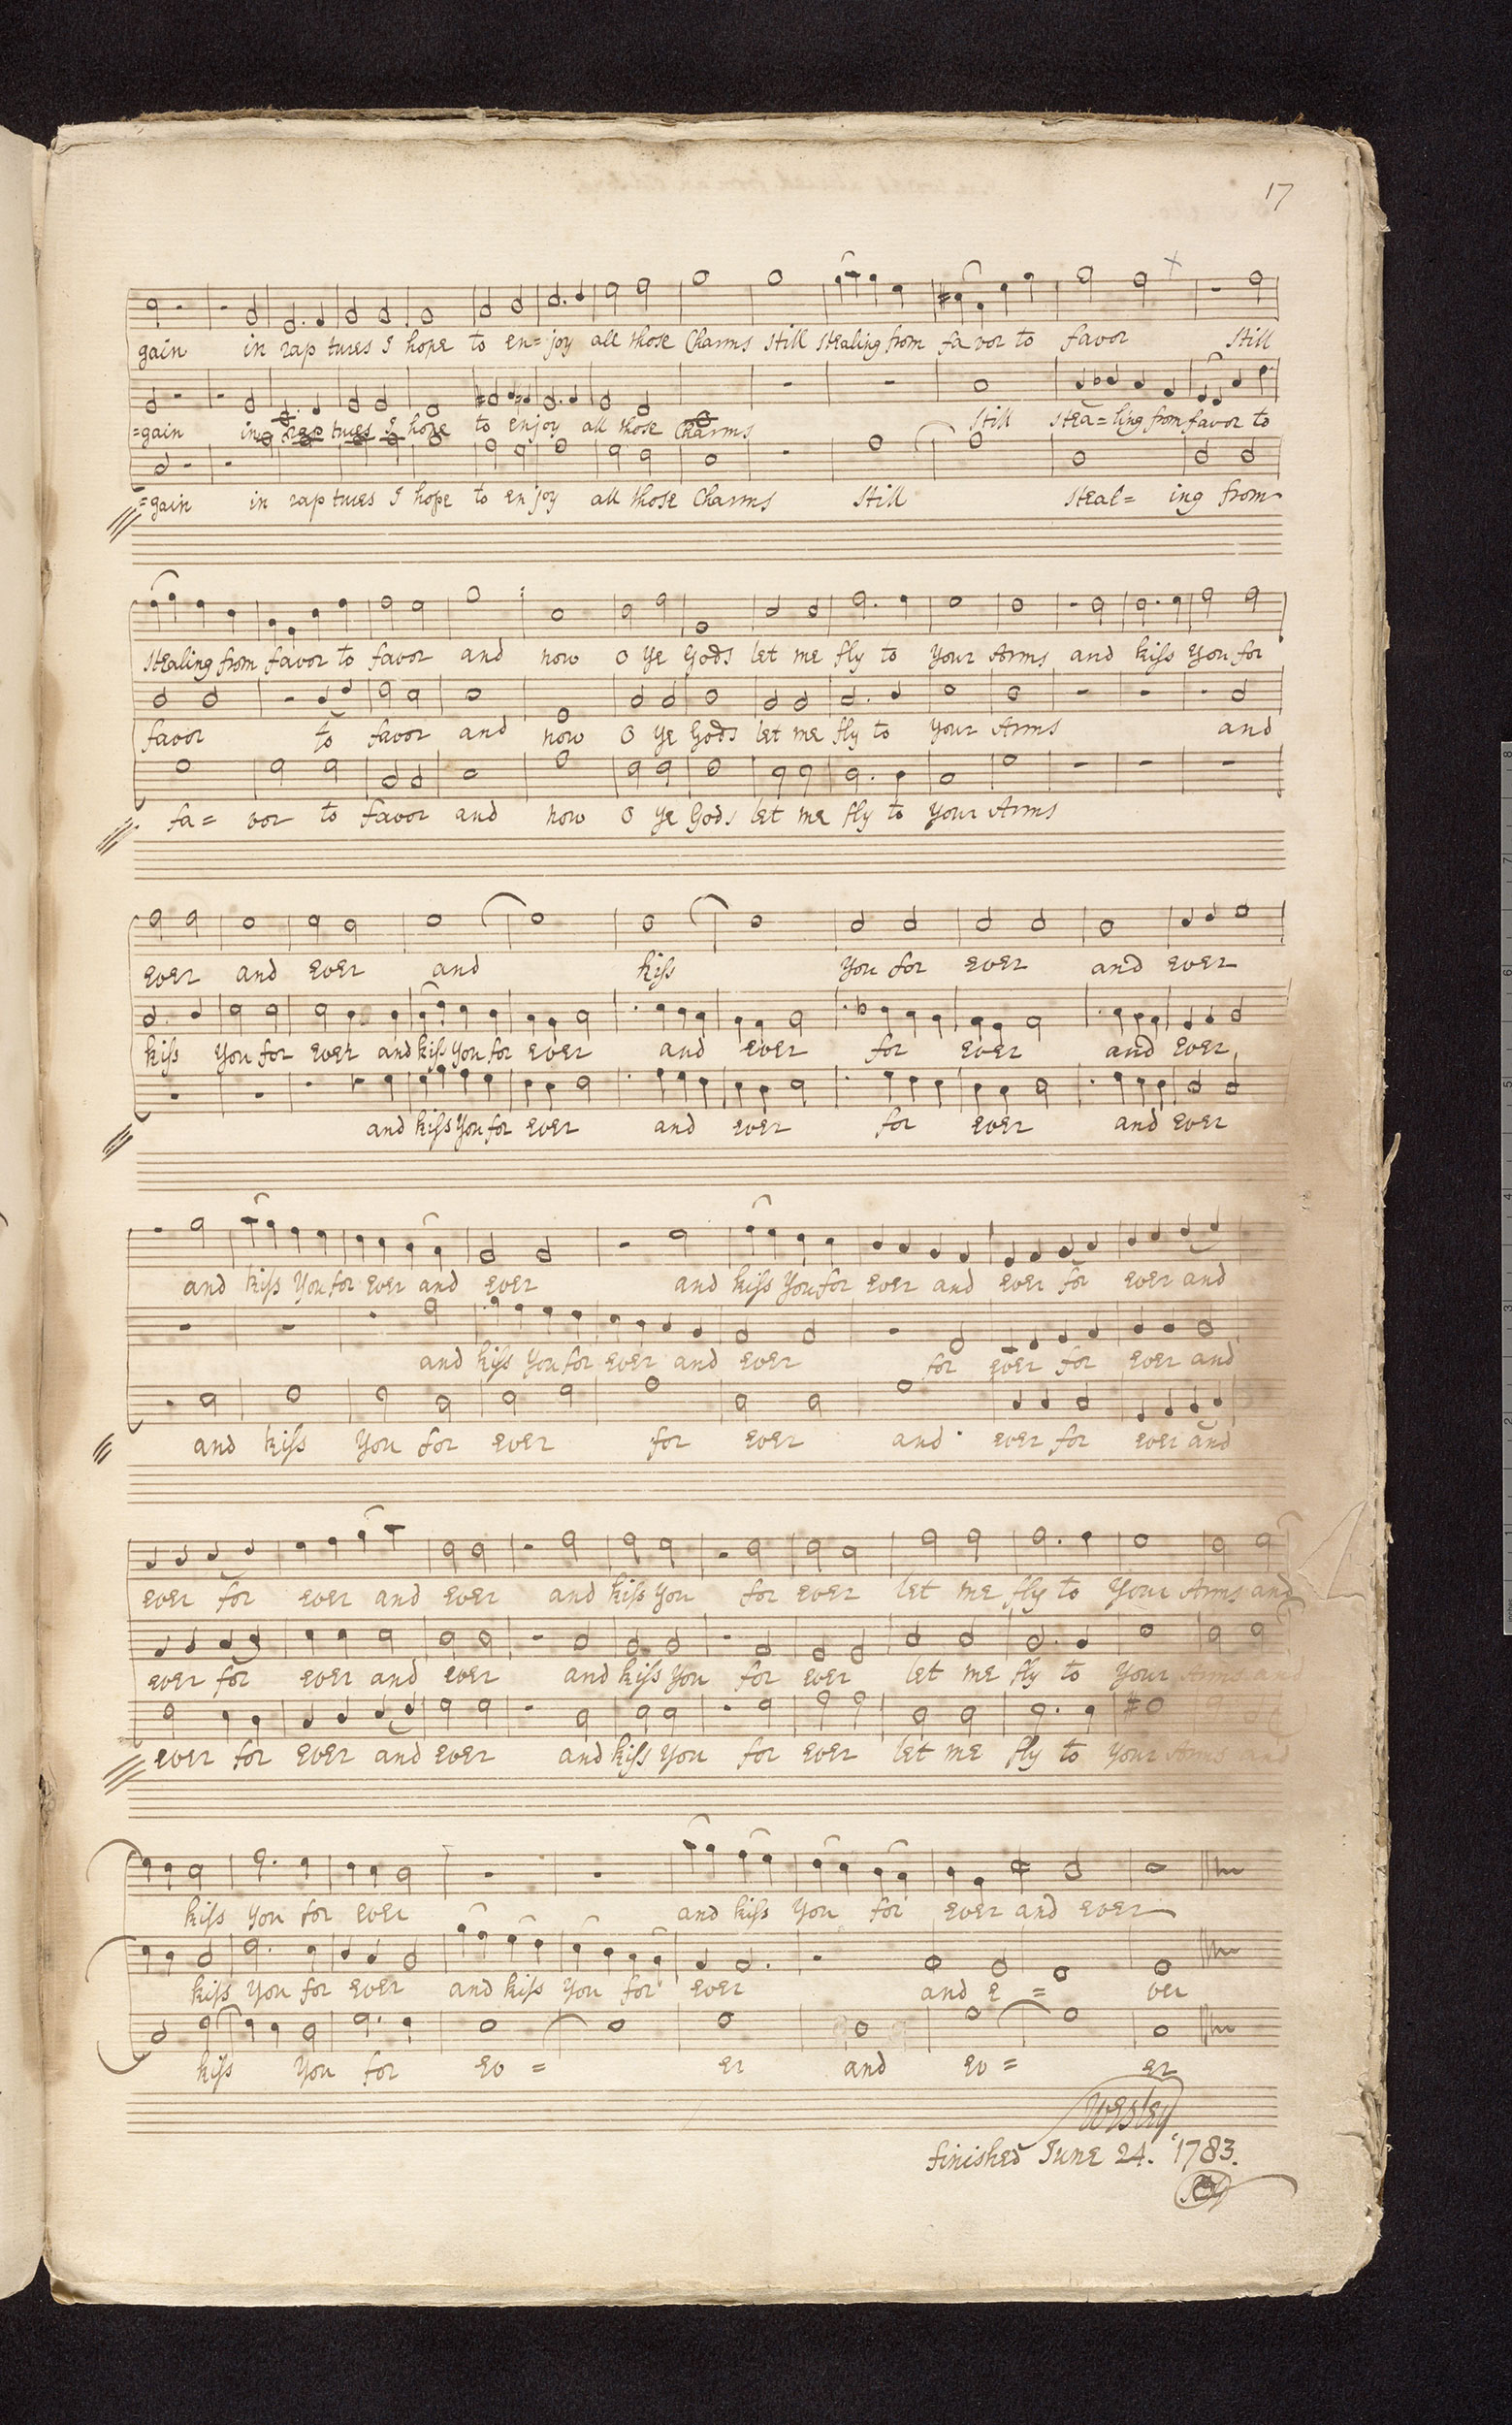 17
gain in rap tures I hope to en= joy all those Charms still stealing from fa vor to favor still
=gain in rap tures I hope to enjoy all those Charms still stea= ling from favor to
=gain in rap tures I hope to enjoy all those Charms still steal= ing from
stealing from favor to favor and now O ye Gods let me fly to your Arms and kiſs you for
favor to favor and now O ye Gods let me fly to your Arms and
fa= vor to favor and now O ye Gods let me fly to your Arms
ever and ever and kiſs you for ever and ever
kiſs you for ever and kiſs you for ever and ever for ever and ever
and kiſs you for ever and ever for ever and ever
and kiſs you for ever and ever and kiſs you for ever and ever for ever and
and kiſs you for ever and ever for ever for ever and
and kiſs you for ever for ever and ever for ever and
ever for ever and ever and kiſs you for ever let me fly to your Arms and
ever for ever and ever and kiſs you for ever let me fly to your Arms and
ever for ever and ever and kiſs you for ever let me fly to your Arms and
kiſs you for ever and kiſs you for ever and ever
kiſs you for ever and kiſs you for ever and e = ver
kiſs you for ev = er and ev = er
Wesley
finished June 24. 1783.